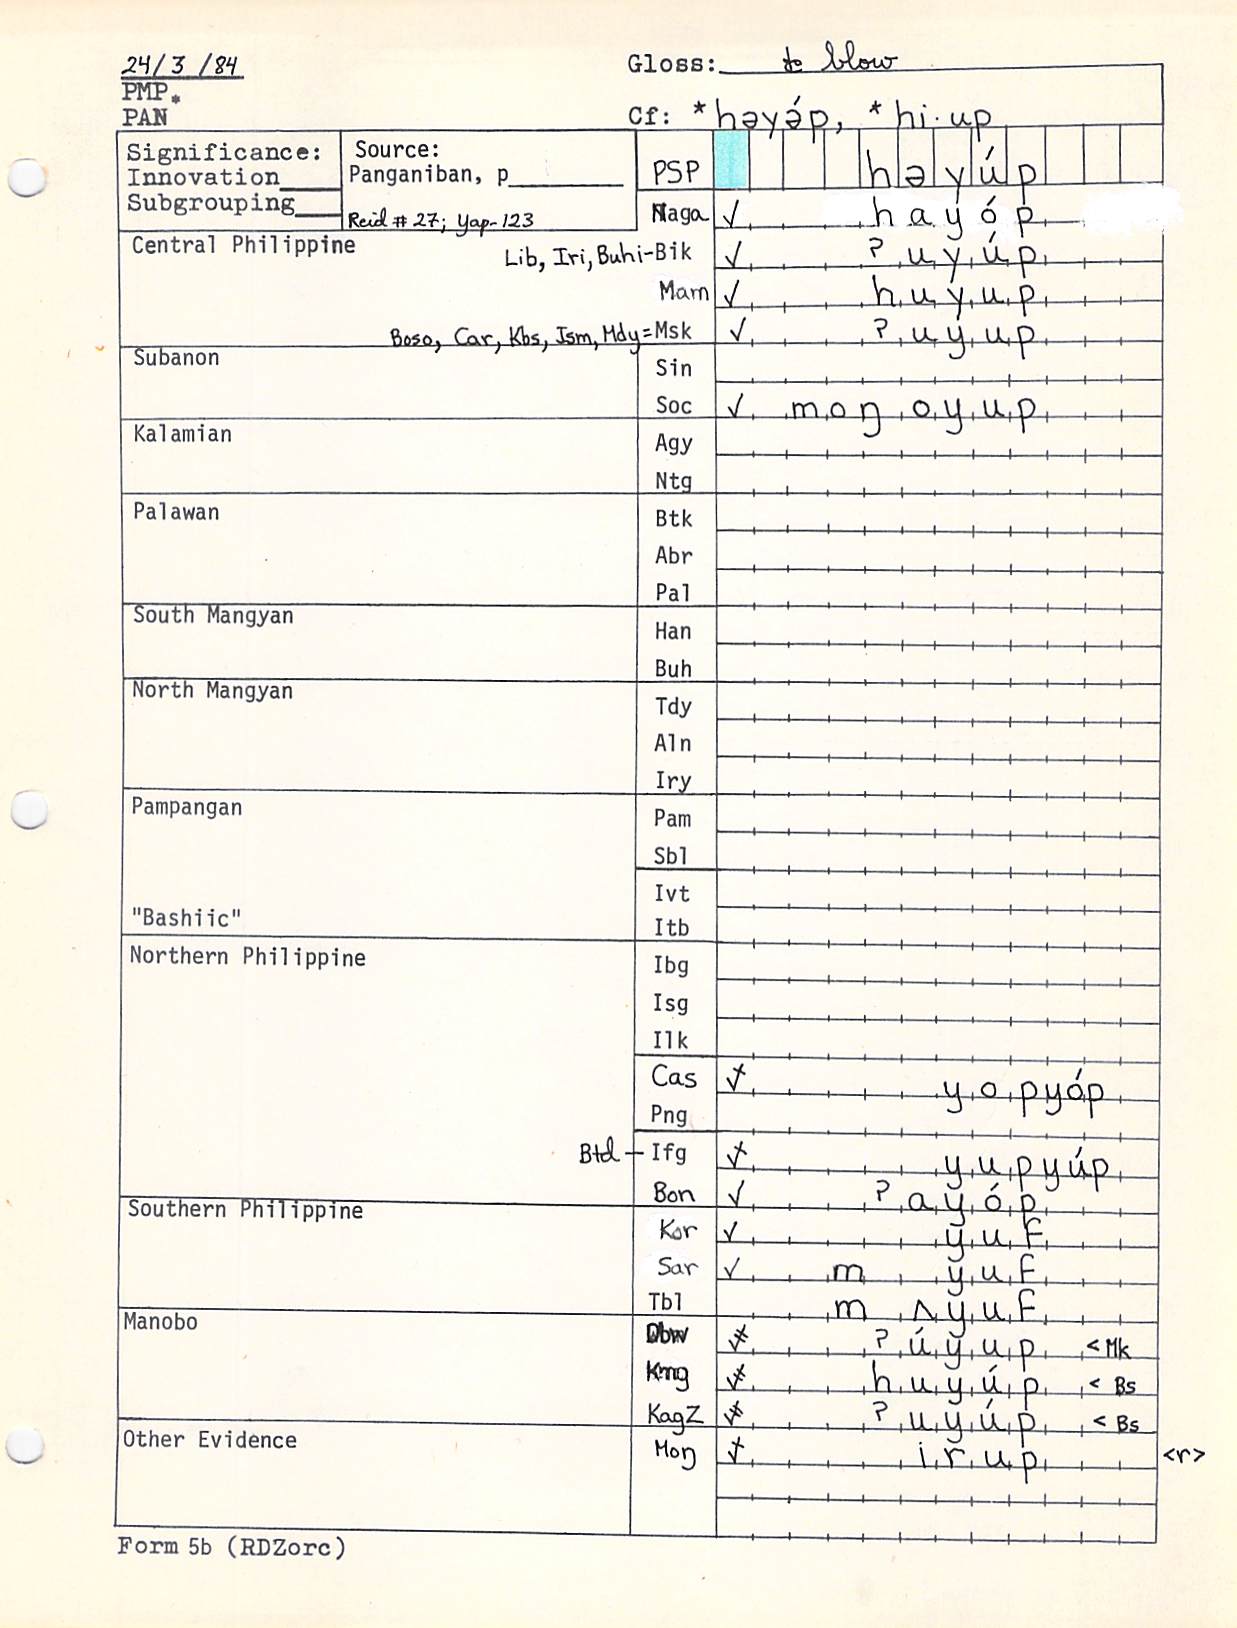 24/3/84 Gloss: to blow
PMP*
PAN Cf: *həyə́p, *hi·up
Significance: Source:
Innovation Panganiban, p PSP həyúp
Subgrouping
Reid # 27; Yap-123 Naga ✓ hayóp
Central Philippine Lib, Iri, Buhi-Bik ✓ ʔuyúp
Mam ✓ huyup
Boso, Car, Kbs, Jsm, Mdy=Msk ✓ ʔuyup
Subanon Sin
Soc ✓ moŋ oyup
Kalamian Agy
Ntg
Palawan Btk
Abr
Pal
South Mangyan Han
Buh
North Mangyan Tdy
Aln
Iry
Pampangan Pam
Sbl
Ivt
"Bashiic" Itb
Northern Philippine Ibg
Isg
Ilk
Cas yopyóp
Png
Btd – Ifg yupyúp
Bon ✓ ʔayóp
Southern Philippine
Kor ✓ yuf
Sar ✓ m yuf
Tbl m ʌyuf
Manobo Dbw ʔúyup <Mk
Kmg huyúp < Bs
KagZ ʔuyúp < Bs
Other Evidence Moŋ irup <r>
Form 5b (RDZorc)